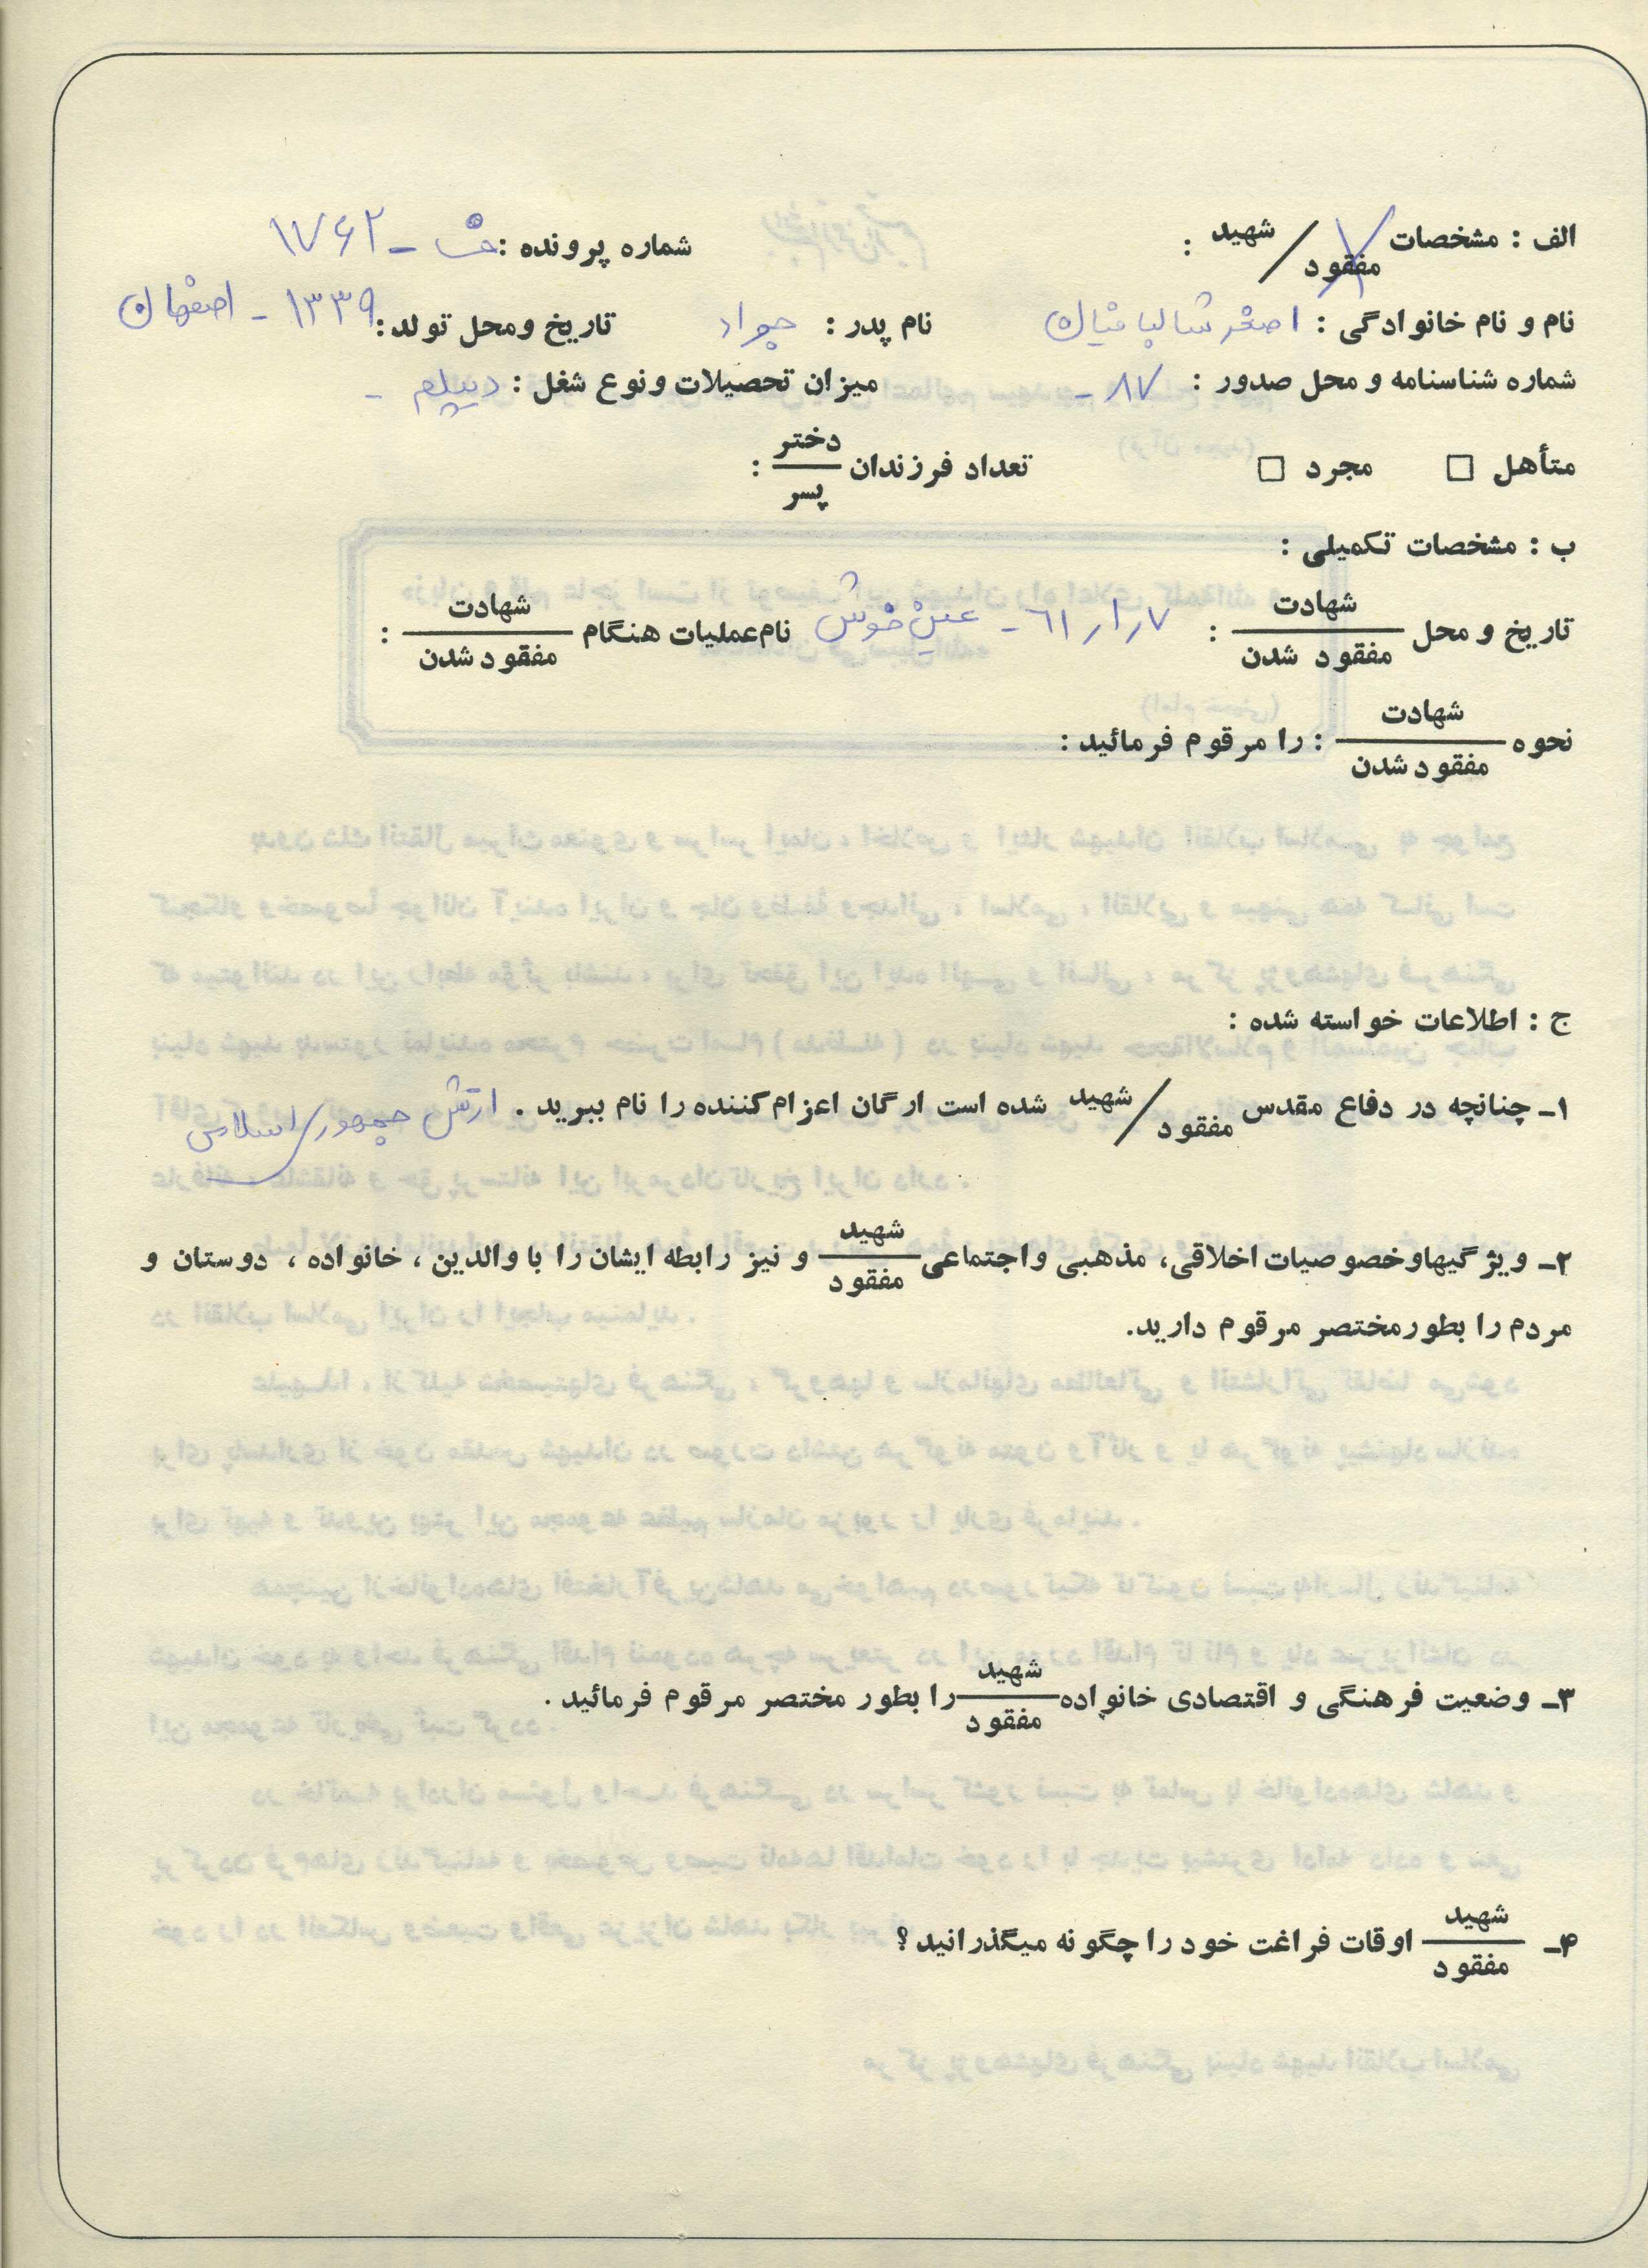 الف : مشخصات شهید / مفقود : شماره پرونده : ۱۷۶۲ -
نام و نام خانوادگی : اصغر شالبافیان نام پدر : جواد تاریخ ومحل تولد : ۱۳۳۹ - اصفهان
شماره شناسنامه و محل صدور : ۸۷ - میزان تحصیلات ونوع شغل : دیپلم -
متأهل □ مجرد □ تعداد فرزندان دختر / پسر :
ب : مشخصات تکمیلی :
تاریخ و محل شهادت / مفقود شدن : ۷ ر ۱ ر ۶۱ - عین خوش نام عملیات هنگام شهادت / مفقود شدن :
نحوه شهادت / مفقود شدن : را مرقوم فرمائید :
ج : اطلاعات خواسته شده :
۱- چنانچه در دفاع مقدس شهید / مفقود شده است ارگان اعزام کننده را نام ببرید . ارتش جمهوری اسلامی
۲- ویژگیهاوخصوصیات اخلاقی، مذهبی واجتماعی شهید / مفقود و نیز رابطه ایشان را با والدین ، خانواده ، دوستان و
مردم را بطورمختصر مرقوم دارید.
۳- وضعیت فرهنگی و اقتصادی خانواده شهید / مفقود را بطور مختصر مرقوم فرمائید .
۴- شهید / مفقود اوقات فراغت خود را چگونه میگذرانید ؟